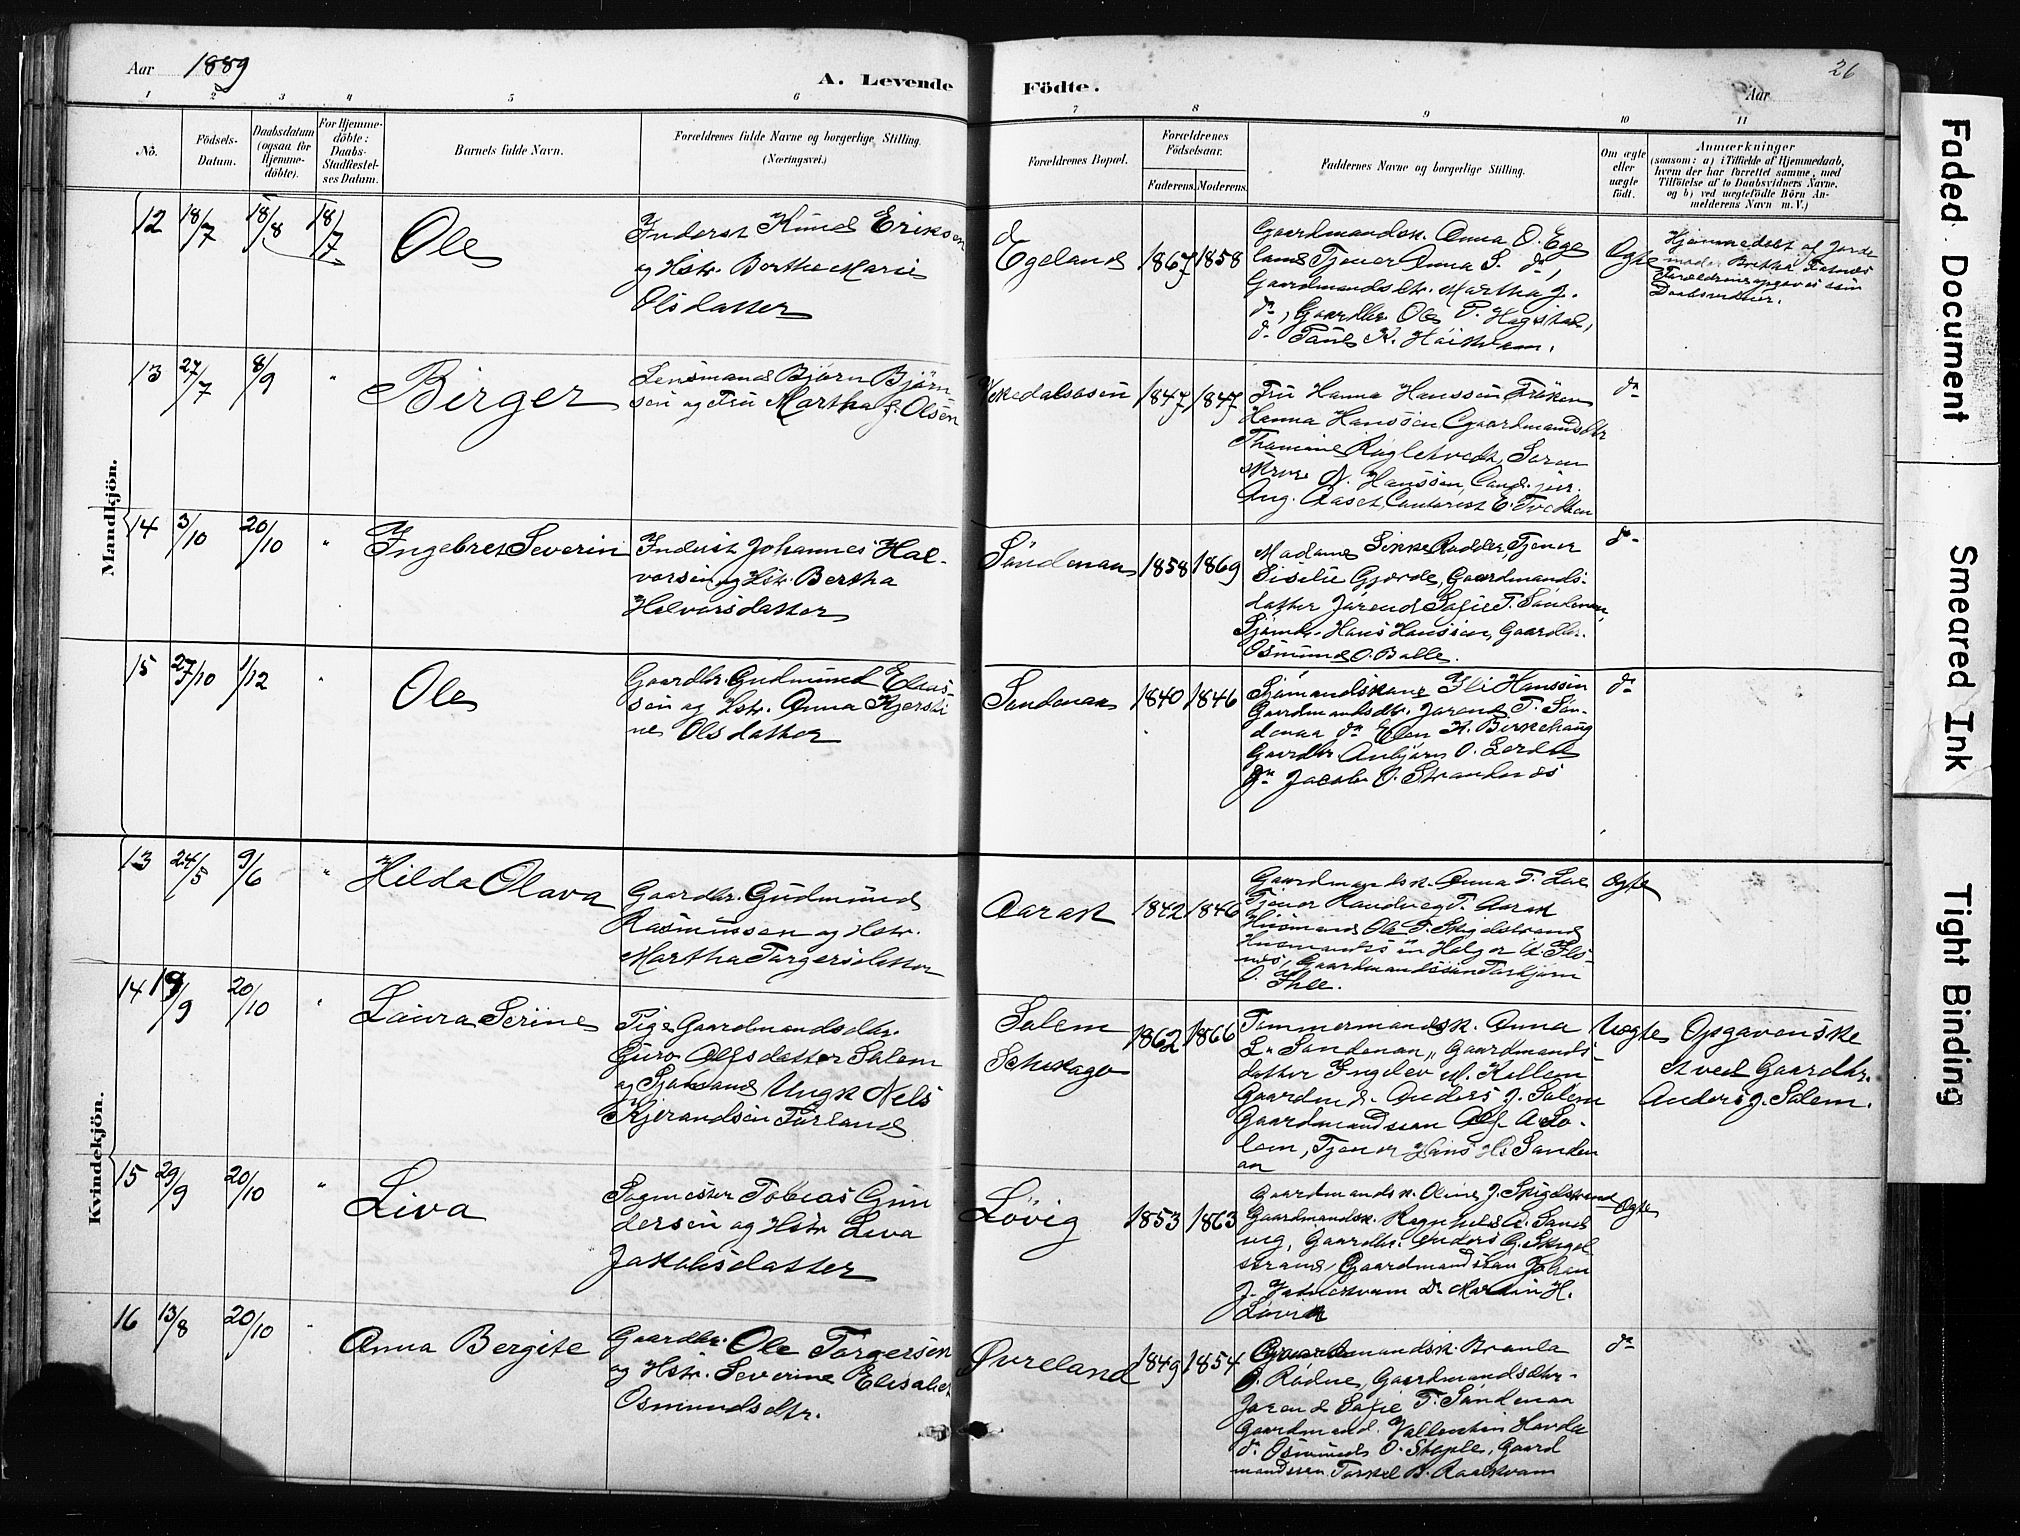 Aar 1889
A. Levende Födte.
26
Aar
1 2 3 4 5 6 7 8 9 10 11
No.
Födsels-Datum.
Daabsdatum (ogsaa for Hjemme-döbte).
For Hjemme-döbte: Daabs-Stadfæstel-ses Datum.
Barnets fulde Navn.
Forældrenes fulde Navne og borgerlige Stilling. (Næringsvei.)
Forældrenes Bopæl.
Forældrenes Födselsaar.
Faderens. Moderens.
Faddernes Navne og borgerlige Stilling.
Om ægte eller uægte födt.
Anmærkninger
(saasom: a) i Tilfælde af Hjemmedaab,
hvem der har forrettet samme, med
Tilföielse af to Daabsvidners Navne.
og b) ved uægtefödte Börn An-
melderens Navn m. V.)
Mandkjön.
12 18/7 18/8 18/7 Ole
Inderst Knud Eriksen
og Hstr. Berthe Marie
Olsdatter
Egeland 1867 1858
Gaardmandsk. Anna O. Ege
land Tjener Anna S. do,
Gaardmandsdtr. Martha J.
do, Gaardbr. Ole P. Hogstad,
do
Ægte
Hjemmedøbt af Jorde
13 27/7 8/9 " Birger
Lensmand Bjørn Bjørn
sen og Fru Martha f. Olsen
Vikedalsosen 1847 1847
Fru Hanna Hanssen, Frøken
Hanna Hanssen Gaardmandsdtr
Soren
skriver N. Hanssen, Cand. jur.
Aug. Aaset, Contorist E. Tvedten
do
14 3/10 20/10 " Ingebret Severin
Inderst Johannes Hal-
vorsen og Hstr. Bertha
Halvorsdatter
Söndenaa 1858 1869
Madame Sikke Rødder, Tjener
Siselie Gjerde, Gaardmands-
datter Jorend Sofie T. Söndenaa,
Sjømd. Hans Hanssen, Gaardbr.
Osmund O. Balle.
do
15 27/10 1/12 " Ole
Gaardbr. Gudmund Elias-
sen og Hstr. Anna Kjersti
ne Olsdatter
Sandenaa 1840 1846
Sjømandskone Hanssen
Gaardmandsdtr. Jorend T. San-
denaa do Elen K. Birkehaug
Gaardbr Anbjørn O.
do Jacob O. Strandnes
do
Kvindekjön.
13 24/5 9/6 " Hilda Olava
Gaardbr. Gudmund
Rasmussen og Hstr.
Martha Torgersdatter
Aarak 1842 1846
Gaardmandsk. Anna T.
Tjener Randveig T. Aarak
Husmand Ole T. Skigelstrand
Husmandssön Holger
Gaardmandssøn Torbjørn
O.
Ægte
14 19/9 20/10 " Laura Serine
Pige Gaardmandsdtr.
Guro Olfsdatter Salem
og Sjømand Ungk Nels
Kjerandsen Førland
Salem
Schikago
1862 1866
Tømmermandsk. Anna
L. Sandenaa, Gaardmands-
datter Ingelev N. Kallem
Gaardmd. Anders J. Salem
Gaardmandssøn Olf A. Sa-
lem, Tjener Hans H. Sanden
aa
Uægte
Opgaven ske
t ved Gaardbr.
Anders J. Salem.
15 29/9 20/10 " Liva
Sagmester Tobias Gun
dersen og Hstr Liva
Jakobsdatter
Lövig 1853 1863
Gaardmandsk. Oline J. Skigelstrand
Gaardmandsk. Ragnhild A. Sand
vig, Gaardbr. Anders G. Skigel
strand, Gaardmandssøn Johan
J. do Martin H.
Løvik
Ægte
16 13/8 20/10 " Anna Bergite
Gaardbr. Ole Torgersen
og Hstr. Severine Elisabet
Osmundsdtr.
Øvreland 1849 1854
Gaardmandsk. Branla
Rødne, Gaardmandsdtr.
Jorend Sofie T. Söndenaa
Gaardmand. Vallentin Havda
do Osmund O. Stople, Gaard
mandssøn Torkel B. Raalkvam
do
Faded Document
Smeared Ink
Tight Binding